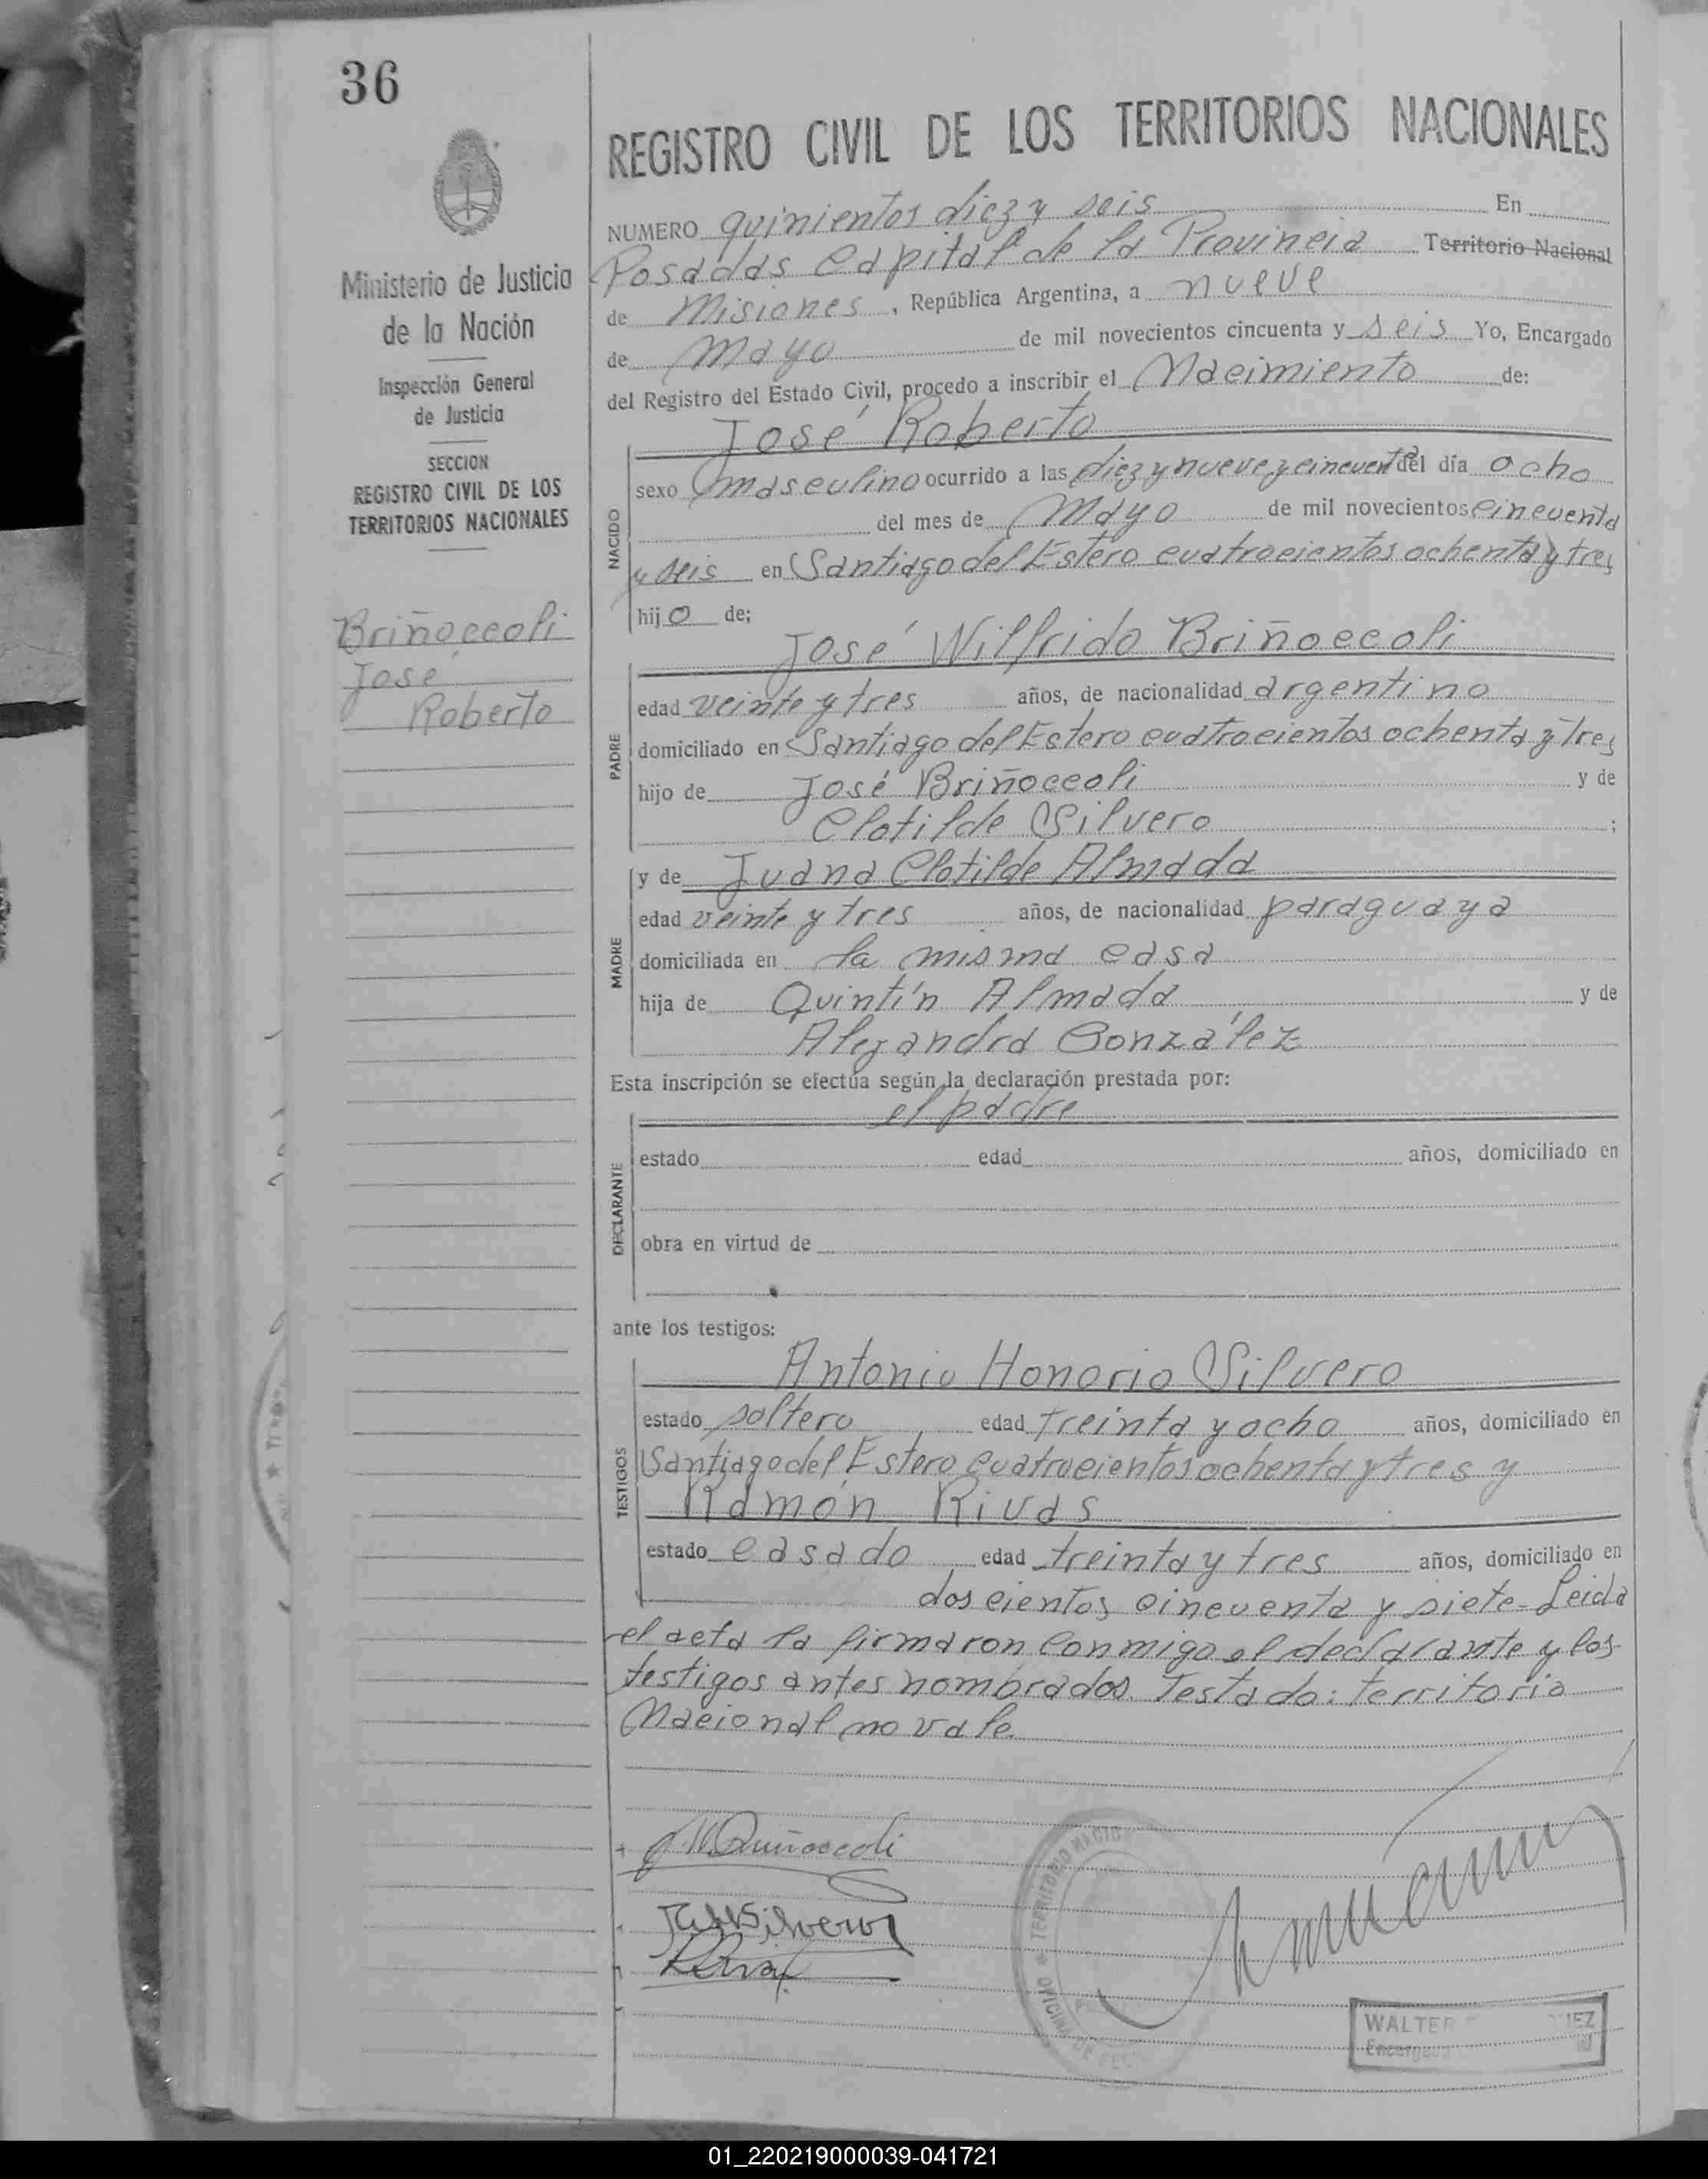 36
REGISTRO CIVIL DE LOS TERRITORIOS NACIONALES
Ministerio de Justicia
de la Nación
Inspección General
de Justicia
SECCION
REGISTRO CIVIL DE LOS
TERRITORIOS NACIONALES
Briñoccoli
José
Roberto
NUMERO quinientos diez y seis En
Posadas Capital de la Provincia Territorio Nacional
de Misiones, República Argentina, a nueve
de Mayo de mil novecientos cincuenta y seis Yo, Encargado
del Registro del Estado Civil, procedo a inscribir el Nacimiento de:
NACIDO
José Roberto
sexo masculino ocurrido a las diez y nueve y cincuenta del día ocho
del mes de Mayo de mil novecientos cincuenta
y seis en Santiago del Estero cuatrocientos ochenta y tres
hijo de;
PADRE
José Wilfrido Briñoccoli
edad veinte y tres años, de nacionalidad argentino
domiciliado en Santiago del Estero cuatrocientos ochenta y tres
hijo de José Briñoccoli y de
Clotilde Silvero ;
MADRE
y de Juana Clotilde Almada
edad veinte y tres años, de nacionalidad paraguaya
domiciliada en la misma casa
hija de Quintín Almada y de
Alejandra González
Esta inscripción se efectúa según la declaración prestada por:
DECLARANTE
el padre
estado edad años, domiciliado en
obra en virtud de
ante los testigos:
TESTIGOS
Antonio Honorio Silvero
estado soltero edad treinta y ocho años, domiciliado en
Santiago del Estero cuatrocientos ochenta y tres y
Ramón Rivas
estado casado edad treinta y tres años, domiciliado en
doscientos cincuenta y siete - Leida
el acta la firmaron conmigo el declarante y los
testigos antes nombrados. Testado: territorio
Nacional no vale.
J. W. Briñoccoli
Silvero
R. Rivas
TERRITORIO NACIO
OFICINA DE
WALTER
Encargado
01_220219000039-041721